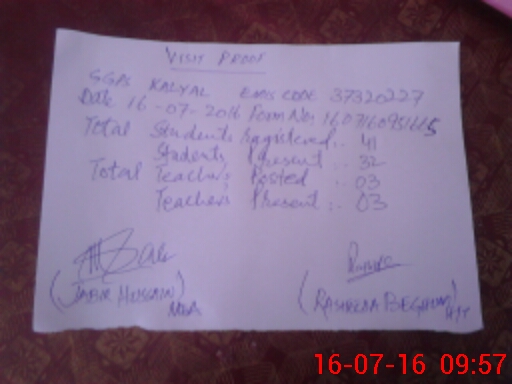 VISIT PROOF
GGPS KALYAL EMIS CODE 37320227
Date 16-07-2016 Form No: 
Total Students Registered:. 41
Students Present:. 32
Total Teachers Posted:. 03
Teachers Present:. 03
(JABIR HUSSAIN)
MEA
(RASHEEDA BEGHUM)
16-07-16 09:57